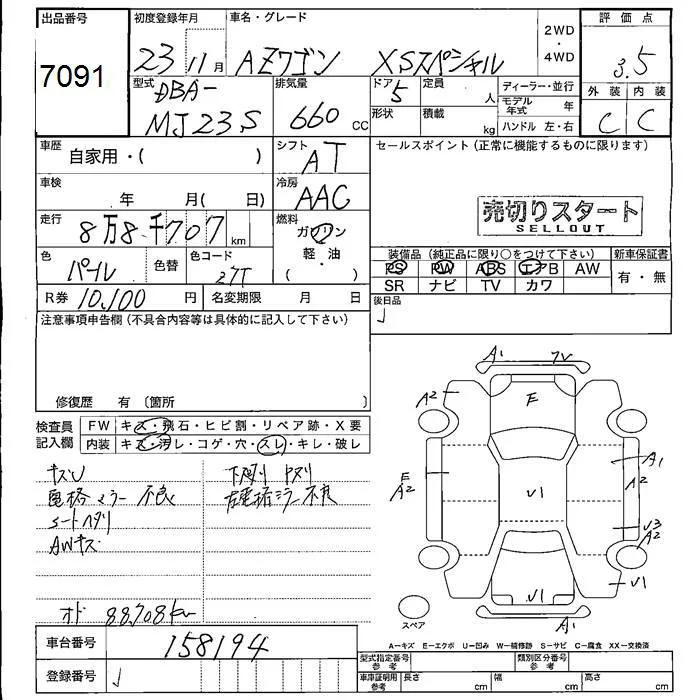 出品番号
7091
初度登録年月
23 11月
車名・グレード
AZワゴン XSスペシャル
2WD
・
4WD
評価点
3.5
外装 内装
C C
型式
DBA-
MJ23S
排気量
660 cc
ドア 5
定員 人
形状
積載 kg
ディーラー・並行
モデル年式 年
ハンドル 左・右
車歴
自家用・( )
シフト
AT
セールスポイント (正常に機能するものに限ります)
売切りスタート
SELLOUT
車検
年 月( 日)
冷房
AAC
走行
8万8千707 km
燃料
ガソリン
軽・油
( )
色
パール
色替
色コード
27T
装備品 (純正品に限り○をつけて下さい)
新車保証書
PS PW ABS エアB AW
SR ナビ TV カワ
有・無
R券 10,100 円
名変期限 月 日
後日品
注意事項申告欄 (不具合内容等は具体的に記入して下さい)
修復歴 有 〔箇所 〕
検査員
記入欄
FW キズ・飛石・ヒビ割・リペア跡・X要
内装 キズ・汚レ・コゲ・穴・スレ・キレ・破レ
キズU
電格ミラー不良
シートヘタリ
AWキズ
下廻リ キズリ
左電格ミラー不良
オド 88,708km
車台番号
158194
登録番号
A1
A2
F
E
A2
V1
A1
A2
V3
A2
V1
V1
A1
スペア
A=キズ E=エクボ U=凹み W=補修跡 S=サビ C=腐食 XX=交換済
型式指定番号
参考
類別区分番号
参考
車庫証明用
参考
長さ cm
幅 cm
高さ cm